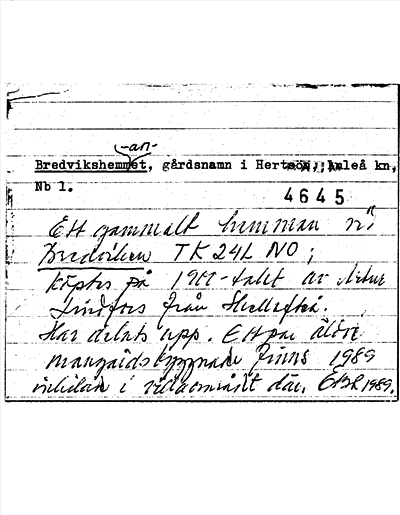 -an-
Bredvikshemmet, gårdsnamn i Hertsön, Luleå kn,
Nb l.
4645
Ett gammalt hemman vid
Bredviken TK 24L NO;
köptes på 1900-talet av Artur
Lindfors från Skellefteå.
Har delats upp. Ett par äldre
mangårdsbyggnader finns 1989
i villaområdet där. EBL 1989.